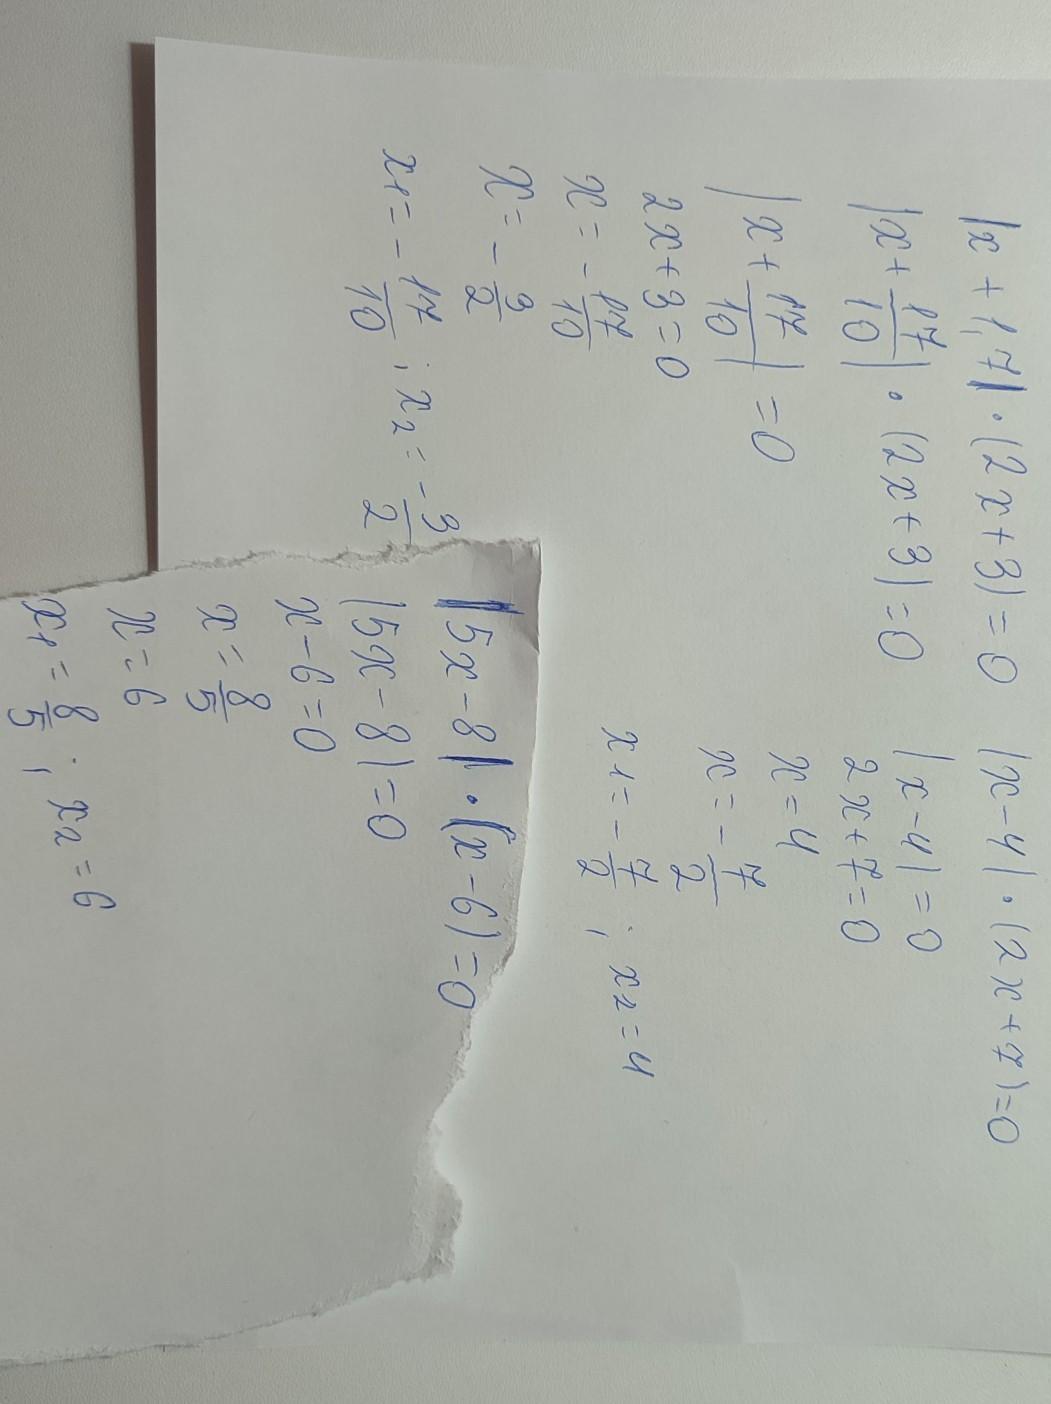 |x + 1,7| · (2x + 3) = 0
|x + 17/10| · (2x + 3) = 0
|x + 17/10| = 0
2x + 3 = 0
x = - 17/10
x = - 3/2
x1 = - 17/10 ; x2 = - 3/2
|x - 4| · (2x + 7) = 0
|x - 4| = 0
2x + 7 = 0
x = 4
x = - 7/2
x1 = - 7/2 ; x2 = 4
|5x - 8| · (x - 6) = 0
|5x - 8| = 0
x - 6 = 0
x = 8/5
x = 6
x1 = 8/5 ; x2 = 6